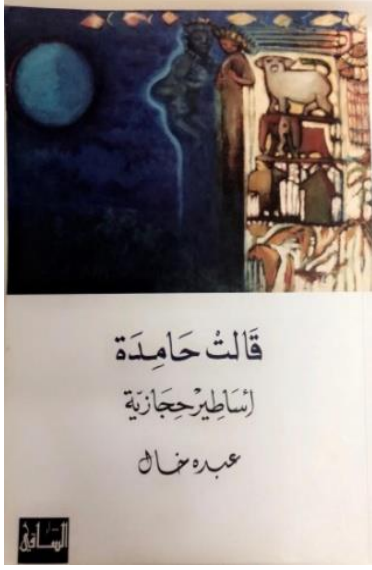 قَالتْ حَامِدَة
أسَاطِيرْ حِجَازيّة
عبده خال
الساقي